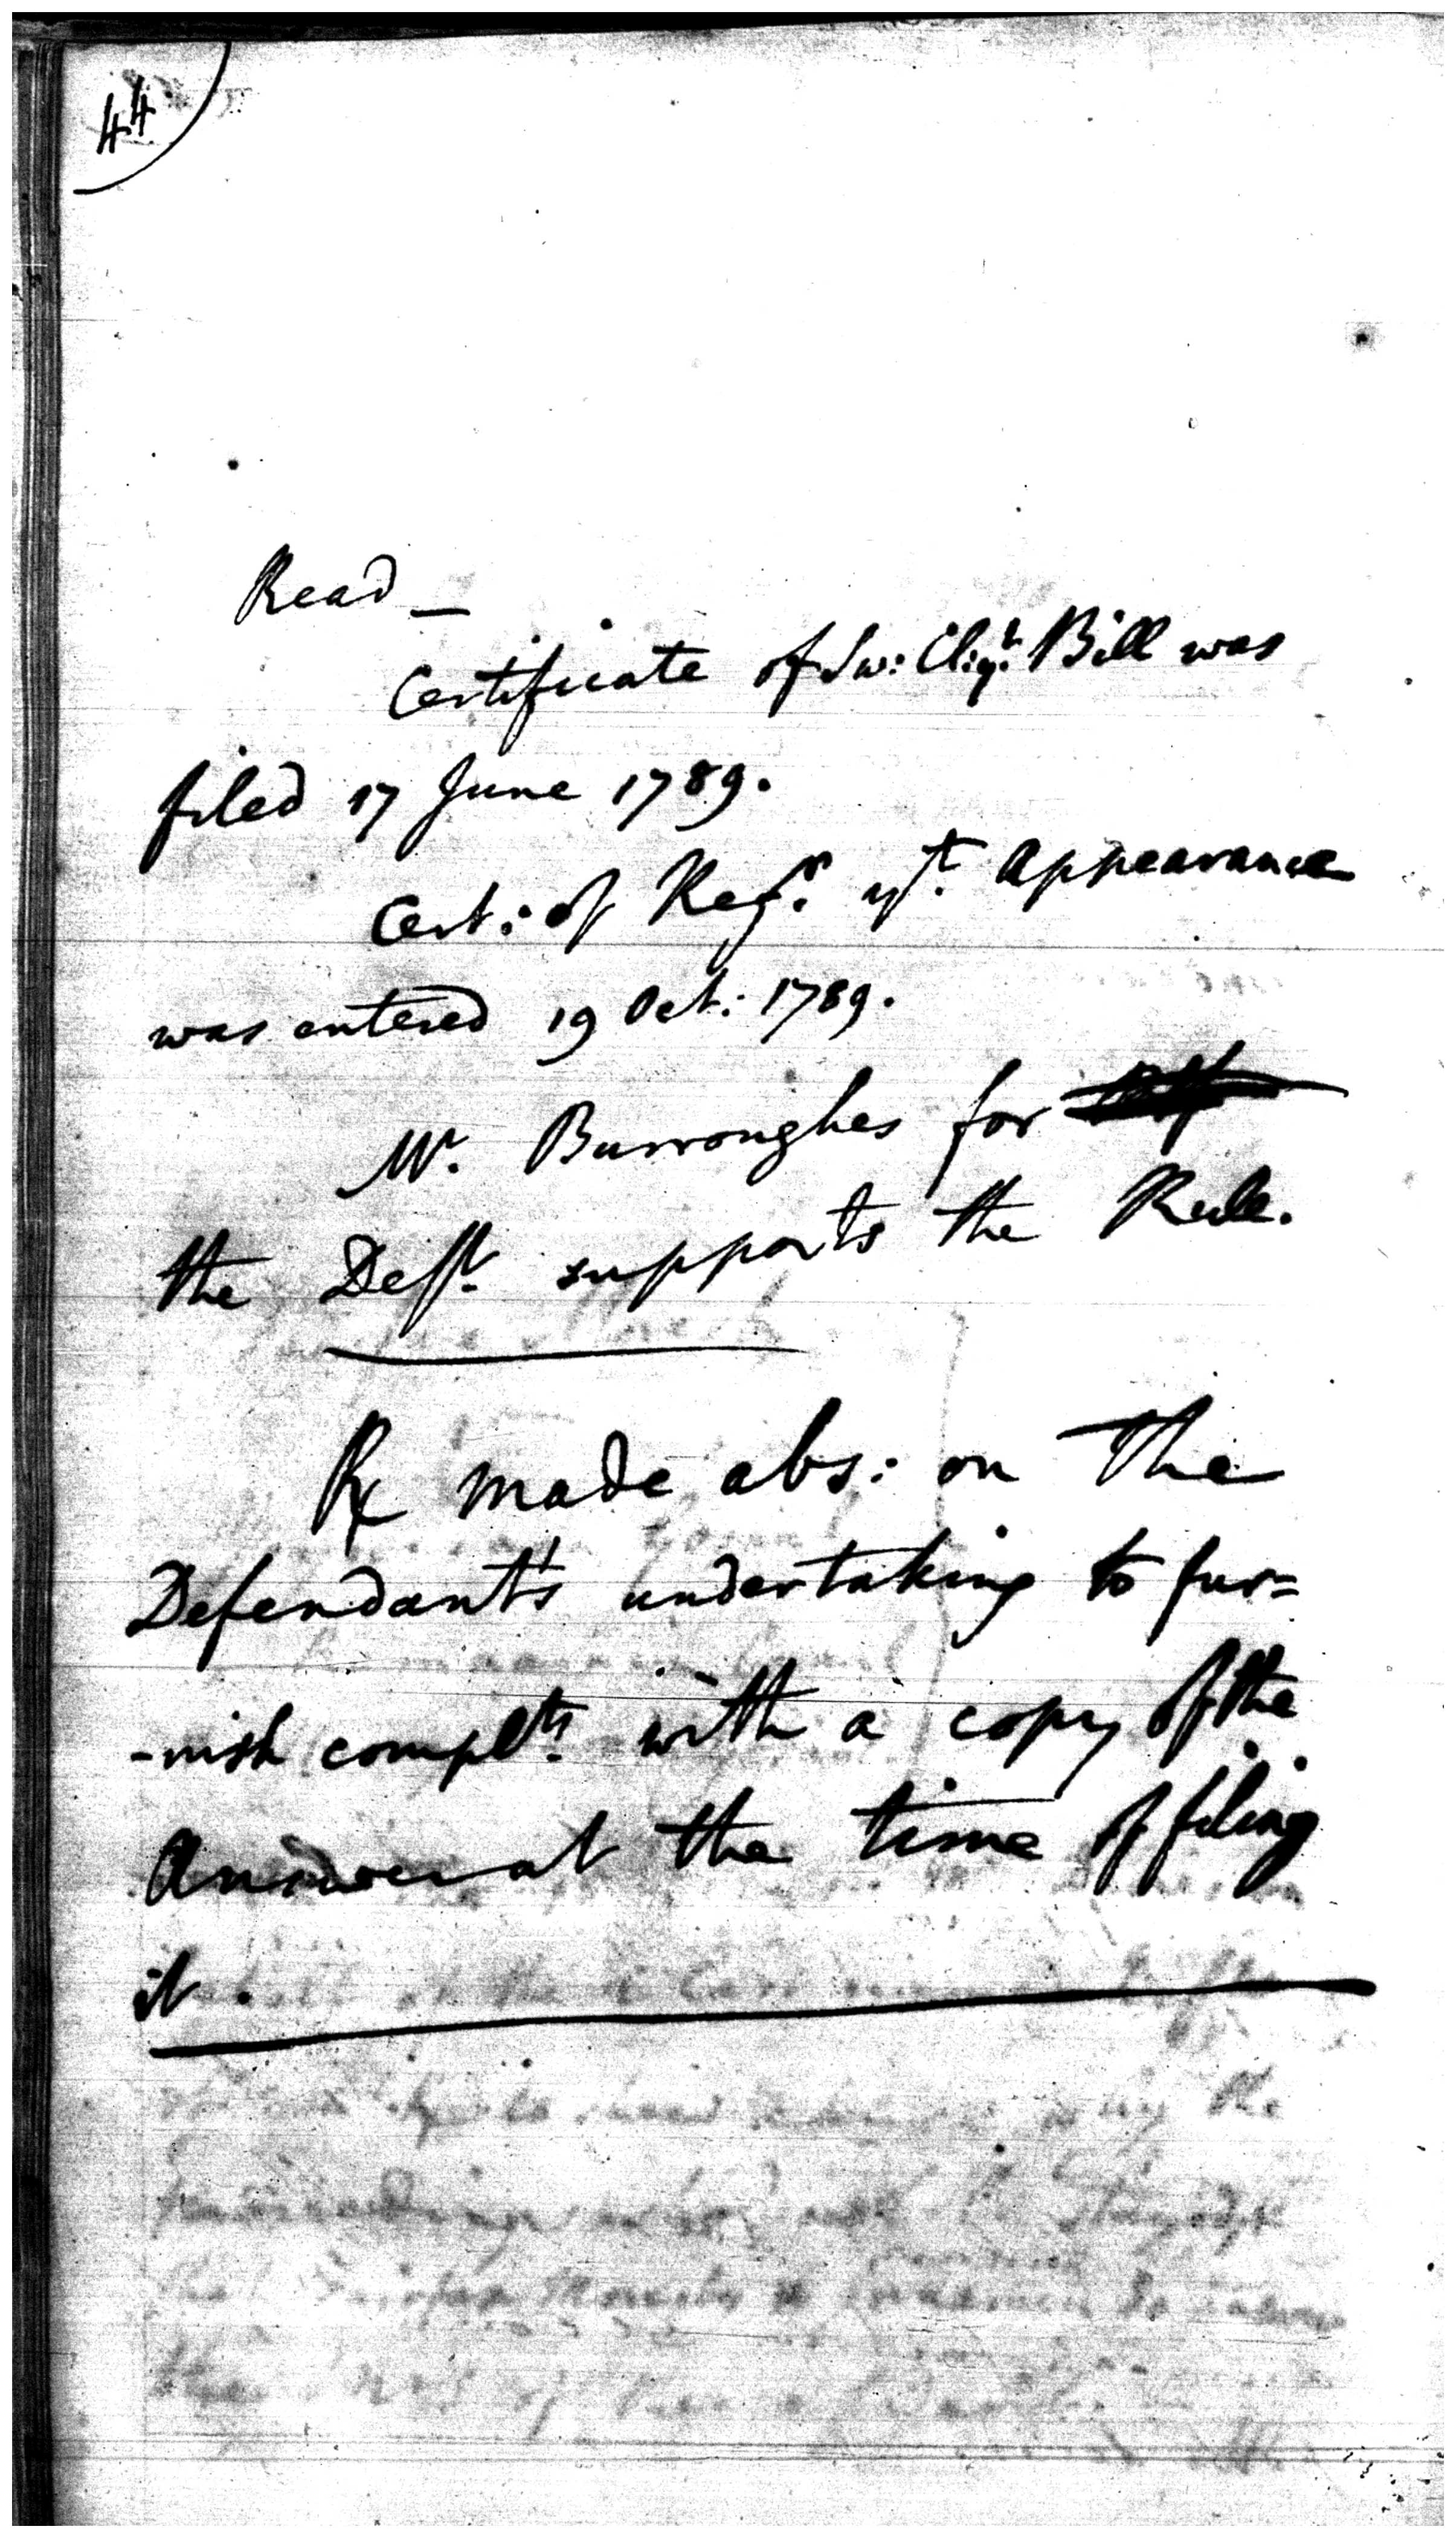 44
Read —
Certificate of Sw: Cl: yt. Bill was
filed 17 June 1789.
Cert: of Regr. yt. appearance
was entered 19 Oct: 1789.
Mr. Burroughes for
the Deft. supports the Rule.
Rx made abs: on the
Defendants undertaking to fur=
-nish complts. with a copy of the
Answer at the time of filing
it.